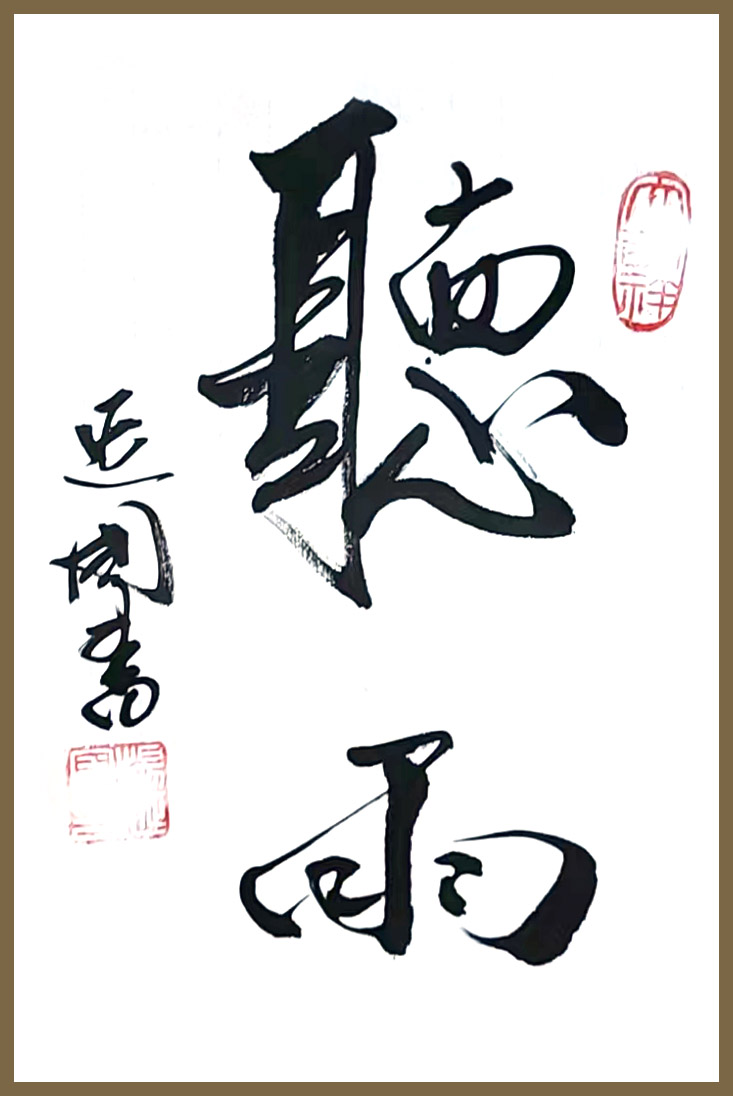 聽雨
延國書